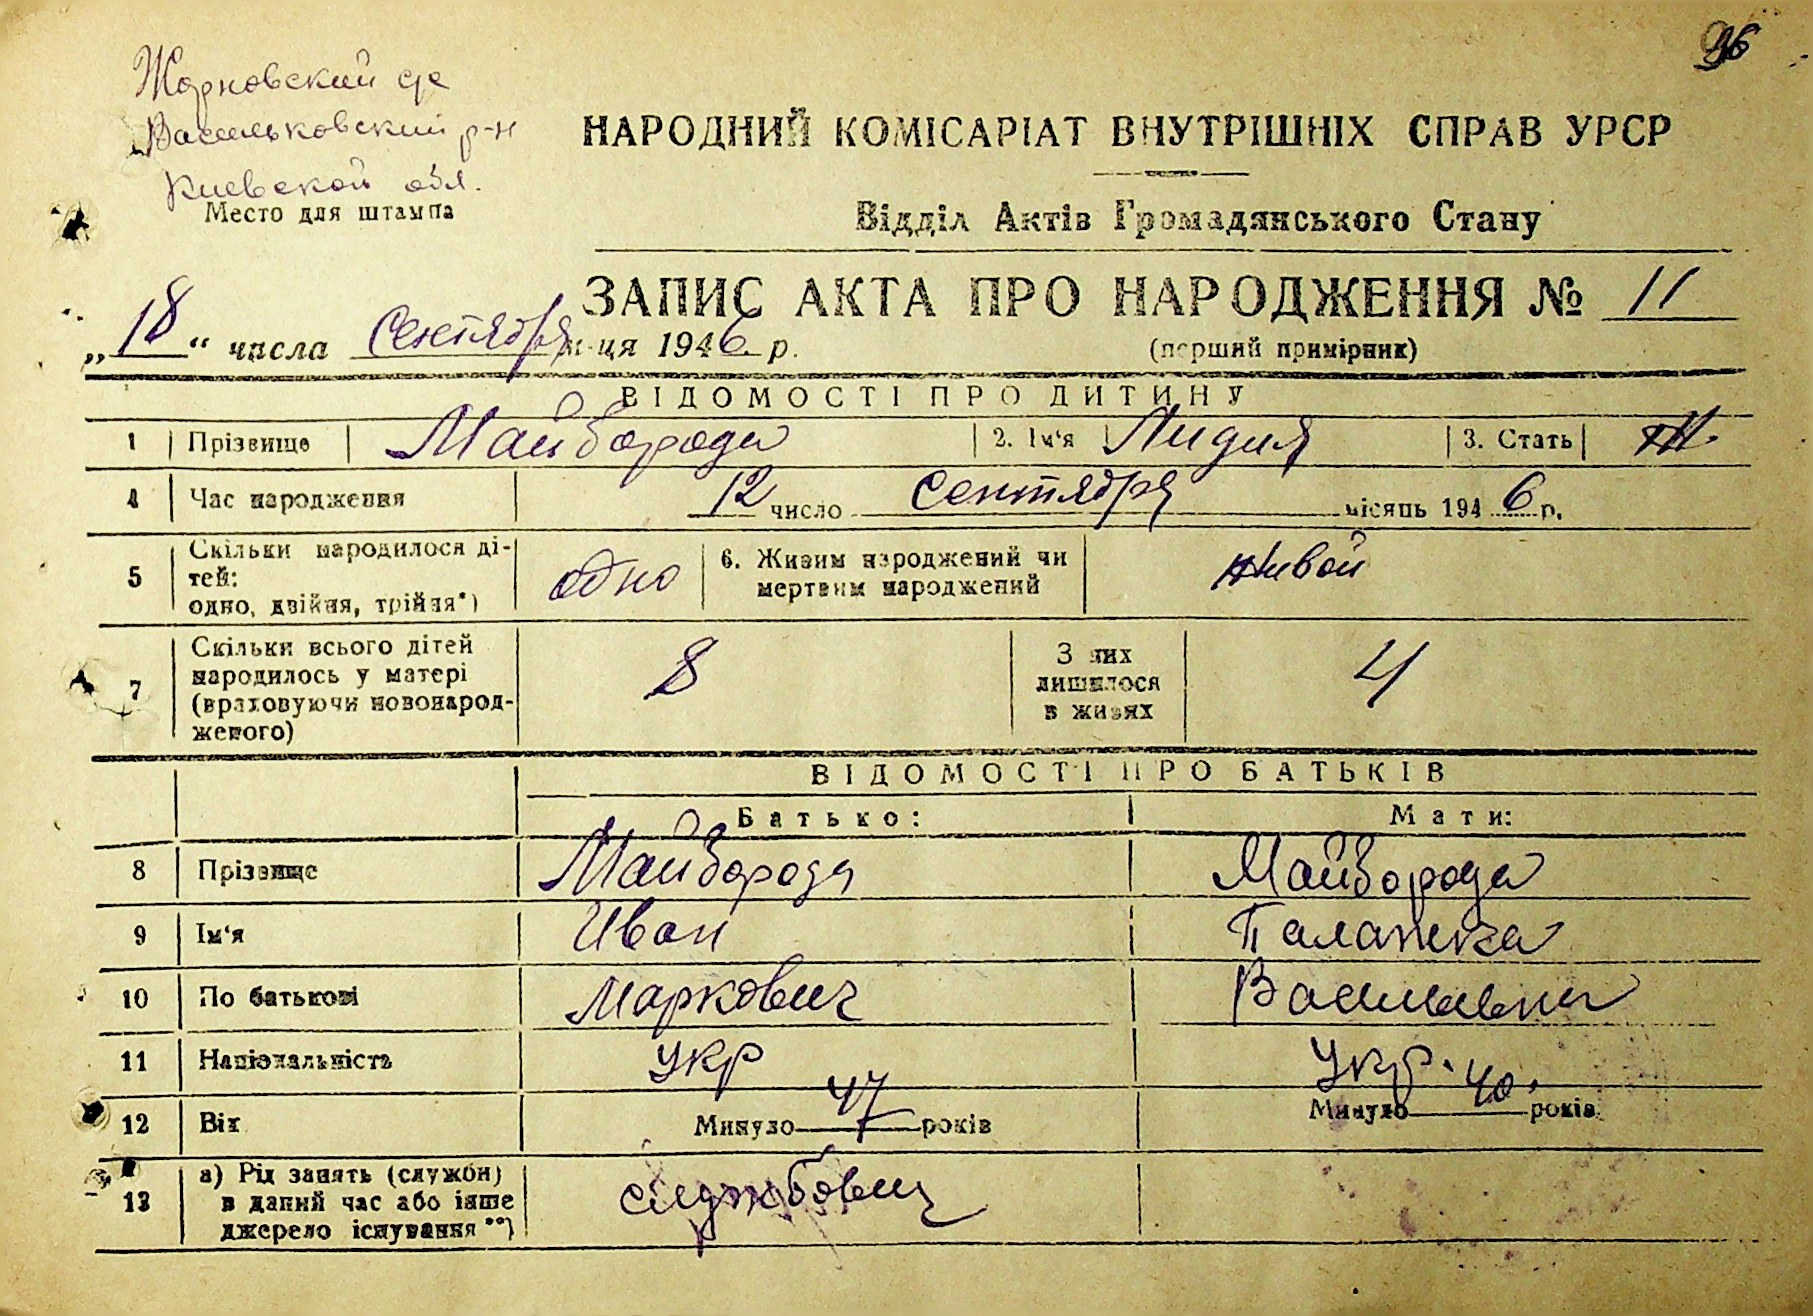 96
Жорновский с/с
Васильковский р-н
Киевской обл.
Место для штампа
НАРОДНИЙ КОМІСАРІАТ ВНУТРІШНІХ СПРАВ УРСР
Відділ Актів Громадянського Стану
ЗАПИС АКТА ПРО НАРОДЖЕННЯ № 11
„18“ числа Сентября м-ця 1946 р.
(перший примірник)
ВІДОМОСТІ ПРО ДИТИНУ
1 Прізвище Майборода 2. Ім'я Лидия 3. Стать Ж.
4 Час народження 12 число Сентября місяць 1946 р.
5 Скільки народилося ді-
тей:
одно, двійня, трійня*)
одно
6. Живим народжений чи
мертвим народжений
живой
7 Скільки всього дітей
народилось у матері
(враховуючи новонарод-
женого)
8
З них
лишилося
в живих
4
ВІДОМОСТІ ПРО БАТЬКІВ
Батько: Мати:
8 Прізвище Майборода Майборода
9 Ім'я Иван Палажка
10 По батькові Маркович Васильевна
11 Національність Укр Укр.
12 Вік Минуло 47 років Минуло 40. років
13 а) Рід занять (служби)
в даний час або інше
джерело існування**)
службовец